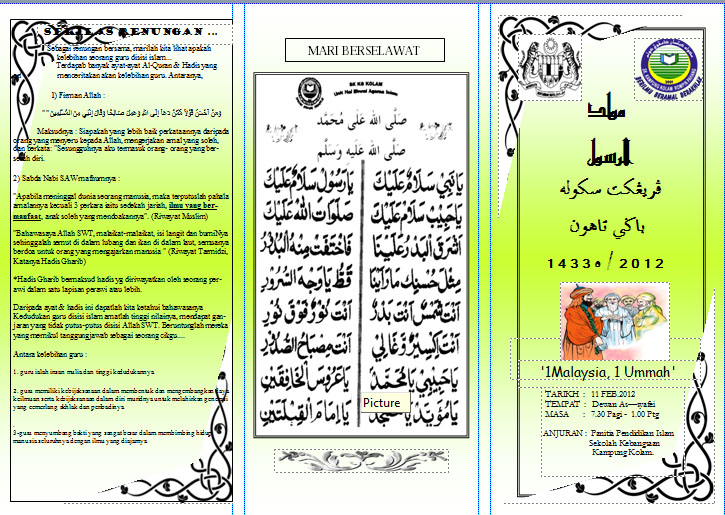 SEKILAS RENUNGAN ...
Sebagai renungan bersama, marilah kita lihat apakah
kelebihan seorang guru disisi islam....
Terdapat banyak ayat-ayat Al-Quran & Hadis yang
menceritakan akan kelebihan guru. Antaranya,
1) Firman Allah :
وَمَنْ أَحْسَنُ قَوْلًا مِّمَّن دَعَا إِلَى اللَّهِ وَعَمِلَ صَالِحًا وَقَالَ إِنَّنِي مِنَ الْمُسْلِمِينَ
Maksudnya : Siapakah yang lebih baik perkataannya daripada
orang yang menyeru kepada Allah, mengerjakan amal yang soleh,
dan berkata: "Sesungguhnya aku termasuk orang- orang yang ber-
serah diri.
2) Sabda Nabi SAW mafhumnya :
"Apabila meninggal dunia seorang manusia, maka terputuslah pahala
amalannya kecuali 3 perkara iaitu sedekah jariah, ilmu yang ber-
manfaat, anak soleh yang mendoakannya". (Riwayat Muslim)
"Bahawasaya Allah SWT, malaikat-malaikat, isi langit dan bumiNya
sehinggalah semut di dalam lubang dan ikan di dalam laut, semuanya
berdoa untuk orang yang mengajarkan manusia " (Riwayat Tarmidzi,
Katanya Hadis Gharib)
*Hadis Gharib bermaksud hadis yg diriwayatkan oleh seorang per-
awi dalam satu lapisan perawi atau lebih.
Daripada ayat & hadis ini dapatlah kita ketahui bahawasanya
Kedudukan guru disisi islam amatlah tinggi nilainya, mendapat gan-
jaran yang tidak putus-putus disisi Allah SWT. Beruntunglah mereka
yang memikul tanggungjawab sebagai seorang cikgu....
Antara kelebihan guru :
1. guru ialah insan mulia dan tinggi kedudukannya
2. guru memiliki kebijaksanaan dalam membentuk dan mengembangkan daya
keilmuan serta kebijaksanaan dalam diri muridnya untuk melahirkan generasi
yang cemerlang akhlak dan peribadinya
3-guru menyumbang bakti yang sangat besar dalam membimbing hidup
manusia seluruhnya dengan ilmu yang diajarnya
MARI BERSELAWAT
SK KG KOLAM
Unit Hal Ehwal Agama Islam
صَلَّى اللهُ عَلَى مُحَمَّد
صَلَّى اللهُ عَلَيْهِ وَسَلَّم
يَا نَبِي سَلَامٌ عَلَيْكَ يَا رَسُول سَلَامٌ عَلَيْكَ
يَا حَبِيب سَلَامٌ عَلَيْكَ صَلَوَاتُ اللهِ عَلَيْكَ
أَشْرَقَ الْبَدْرُ عَلَيْنَا فَاخْتَفَتْ مِنْهُ الْبُدُورُ
مِثْلَ حُسْنِكَ مَا رَأَيْنَا قَطُّ يَا وَجْهَ السُّرُورِ
أَنْتَ شَمْسٌ أَنْتَ بَدْرٌ أَنْتَ نُورٌ فَوْقَ نُورِ
أَنْتَ إِكْسِيرٌ وَغَالِي أَنْتَ مِصْبَاحُ الصُّدُورِ
يَا حَبِيبِي يَا مُحَمَّد يَا عَرُوسَ الْخَافِقَيْنِ
يَا مُؤَيَّد يَا مُمَجَّد يَا إِمَامَ الْقِبْلَتَيْنِ
Picture
BERILMU BERAMAL BERAKHLAK
مولد
الرسول
ڤريڠکت سکوله
باݢي تاهون
1433ه / 2012
'1Malaysia, 1 Ummah'
TARIKH : 11 FEB.2012
TEMPAT : Dewan As—syafei
MASA : 7.30 Pagi - 1.00 Ptg
ANJURAN : Panitia Pendidikan Islam
Sekolah Kebangsaan
Kampung Kolam.